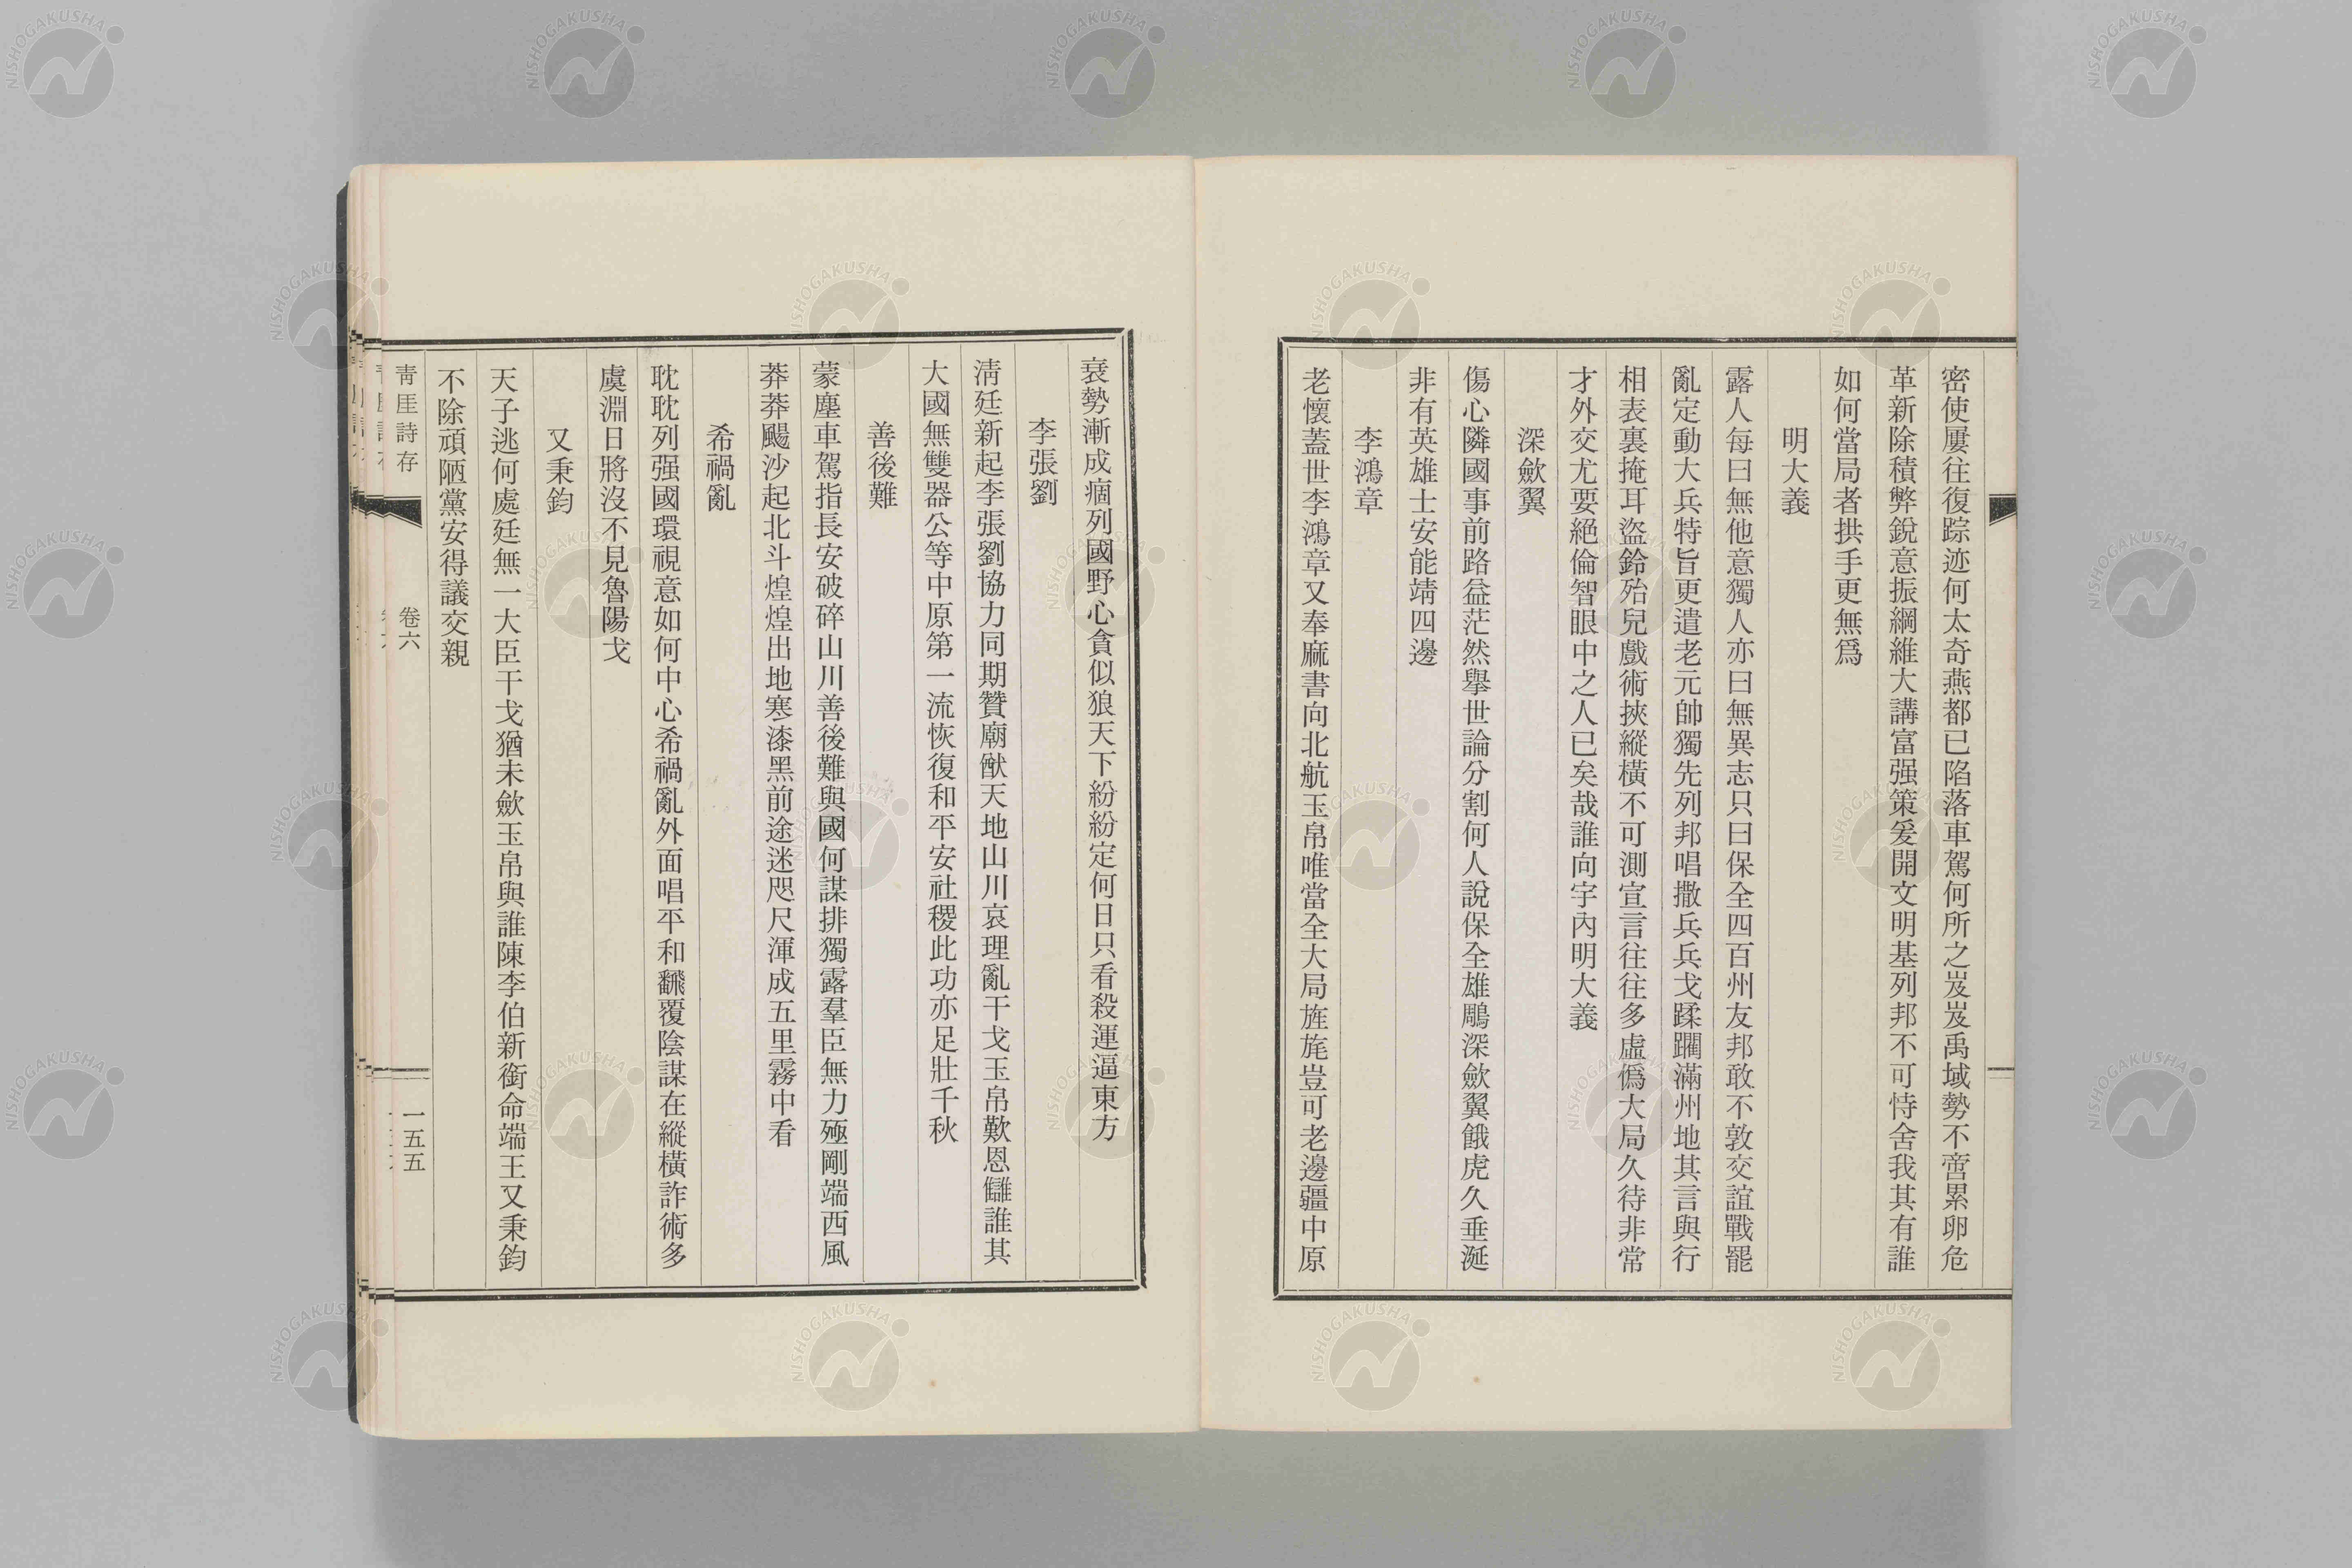 密使屢往復踪迹何太奇燕都已陷落車駕何所之岌岌禹域勢不啻累卵危
革新除積弊銳意振綱維大講富强策爰開文明基列邦不可恃舍我其有誰
如何當局者拱手更無爲
明大義
露人每曰無他意獨人亦曰無異志只曰保全四百州友邦敢不敦交誼戰罷
亂定動大兵特旨更遣老元帥獨先列邦唱撒兵兵戈蹂躙滿州地其言與行
相表裏掩耳盜鈴殆兒戲術挾縱橫不可測宣言往往多虛僞大局久待非常
才外交尤要絕倫智眼中之人已矣哉誰向宇內明大義
深歛翼
傷心隣國事前路益茫然擧世論分割何人說保全雄鵰深歛翼餓虎久垂涎
非有英雄士安能靖四邊
李鴻章
老懷蓋世李鴻章又奉麻書向北航玉帛唯當全大局旌旄豈可老邊疆中原
衰勢漸成痼列國野心貪似狼天下紛紛定何日只看殺運逼東方
李張劉
淸廷新起李張劉協力同期贊廟猷天地山川哀理亂干戈玉帛歎恩讎誰其
大國無雙器公等中原第一流恢復和平安社稷此功亦足壯千秋
善後難
蒙塵車駕指長安破碎山川善後難與國何謀排獨露羣臣無力殛剛端西風
莽莽颺沙起北斗煌煌出地寒漆黑前途迷咫尺渾成五里霧中看
希禍亂
耽耽列强國環視意如何中心希禍亂外面唱平和飜覆陰謀在縱橫詐術多
虞淵日將沒不見魯陽戈
又秉鈞
天子逃何處廷無一大臣干戈猶未歛玉帛與誰陳李伯新銜命端王又秉鈞
不除頑陋黨安得議交親
靑厓詩存 卷六 一五五
NISHOGAKUSHA